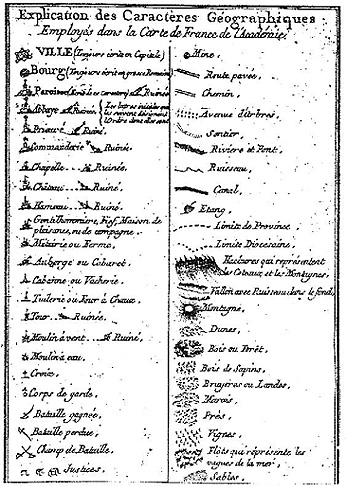 Explication des Caracteres Géographiques
Employés dans la Carte de France de l'Académie
VILLE (Toujours écrite en Capitale)
Bourg (Toujours écrit en grosse Romaine)
Paroisse Ruinée
Abbaye Ruinée
Prieuré Ruiné,
Commanderie Ruinée,
Chapelle Ruinée,
Château Ruiné,
Hameau Ruiné,
Gentilhommiere, Fief, Maison de
plaisance, ou de campagne.
Métairie ou Ferme,
Auberge ou Cabaret,
Cabanne ou Vacherie,
Tuilerie ou Four à Chaux,
Tour Ruinée,
Moulin à vent Ruiné,
Moulin à eau,
Croix,
Corps de garde,
Bataille gagnée,
Bataille perdue,
Champ de Bataille,
Justices,
Mine,
Route pavée,
Chemin,
Avenue d'Arbres,
Sentier,
Riviere et Pont,
Ruisseau,
Canal,
Etang,
Limite de Province,
Limite Diocesaine,
Hachures qui représentent
les Coteaux et les Montagnes,
Vallon avec Ruisseau dans le fond,
Montagne,
Dunes,
Bois ou Forêt,
Bois de Sapins,
Bruyeres ou Landes,
Marais,
Prés,
Vignes,
Flots qui représente les
vagues de la mer,
Sables,